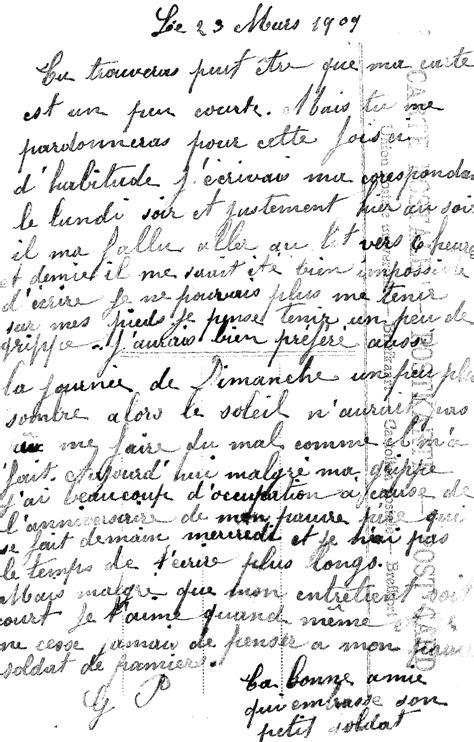 Le 23 Mars 1909
Tu trouveras peut être que ma carte
est un peu courte. Mais tu me
pardonneras pour cette fois ci
d'habitude j'écrivais ma corespondan
le lundi soir et justement hier au soir
il ma fallu aller au lit vers 6 heure
et demie il me serait été bien impossible
d'écrire je ne pouvais plus me tenir
sur mes pieds je pense tenir un peu de
grippe. J'aurais bien préféré aussi
la journée de Dimanche un peu plu
sombre alors le soleil n'aurait pas
me faire du mal comme il m'a
fait. Aujourd'hui malgré ma grippe
j'ai beaucoup d'occupation a cause de
l'anniversaire de mon pauvre père qui
se fait demain mercredi et je n'ai pas
le temps de t'écrire plus longs.
Mais malgré que mon entretient soit
court je t'aime quand même et
ne cesse jamais de penser a mon pauvre
soldat de pamiers.
G P
Ta bonne amie
qui embrasse son
petit soldat
CARTE POSTALE
POST-CARD